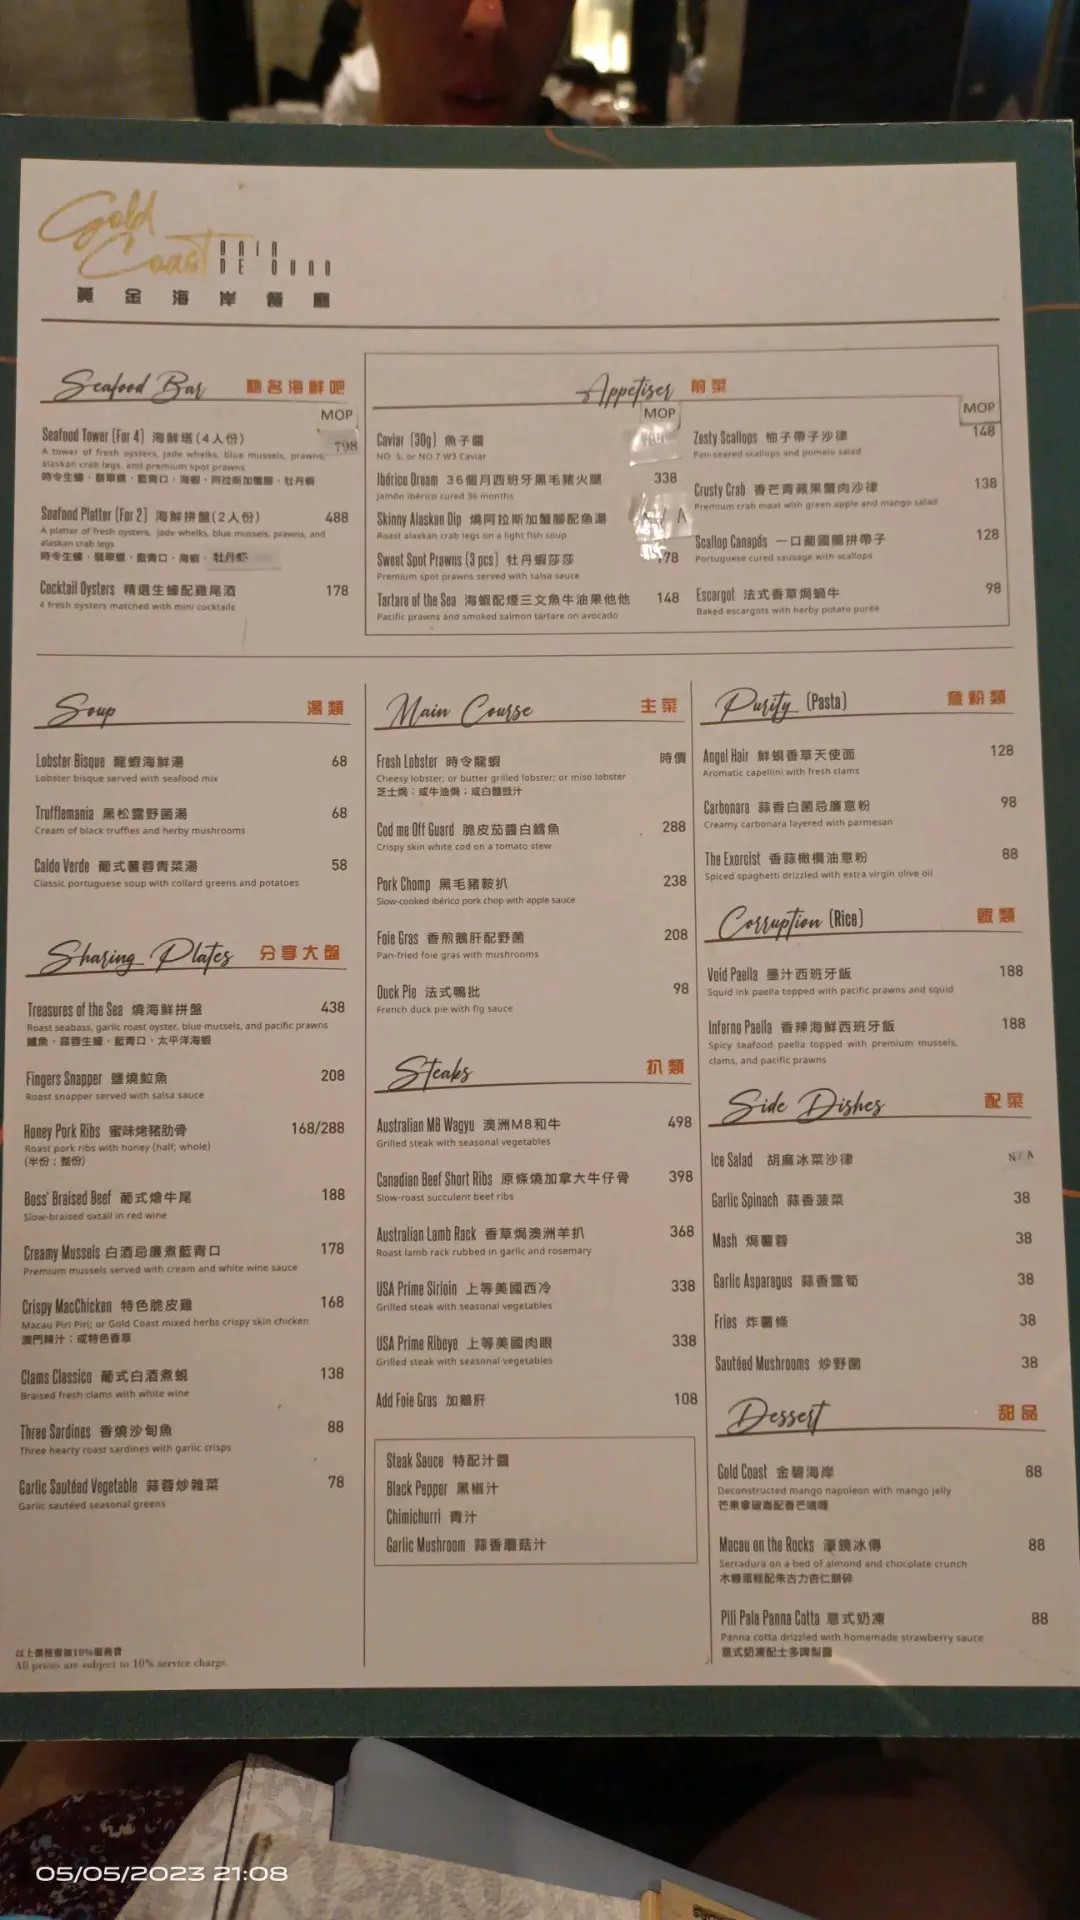 Gold Coast
BAIA DE OURO
黃金海岸餐廳
Seafood Bar 馳名海鮮吧
MOP
Seafood Tower (For 4) 海鮮塔(4人份) 798
A tower of fresh oysters, jade whelks, blue mussels, prawns,
alaskan crab legs, and premium spot prawns
時令生蠔、翡翠螺、藍青口、海蝦、阿拉斯加蟹腳、牡丹蝦
Seafood Platter (For 2) 海鮮拼盤(2人份) 488
A platter of fresh oysters, jade whelks, blue mussels, prawns, and
alaskan crab legs
時令生蠔、翡翠螺、藍青口、海蝦、牡丹虾
Cocktail Oysters 精選生蠔配雞尾酒 178
4 fresh oysters matched with mini cocktails
Appetiser 前菜
MOP
Caviar (30g) 魚子醬
NO. 5; or NO.7 W3 Caviar
Ibérico Dream 36個月西班牙黑毛豬火腿 338
Jamón ibérico cured 36 months
Skinny Alaskan Dip 燒阿拉斯加蟹腳配魚湯 N/A
Roast alaskan crab legs on a light fish soup
Sweet Spot Prawns (3 pcs) 牡丹蝦莎莎 178
Premium spot prawns served with salsa sauce
Tartare of the Sea 海蝦配煙三文魚牛油果他他 148
Pacific prawns and smoked salmon tartare on avocado
MOP
Zesty Scallops 柚子帶子沙律 148
Pan-seared scallops and pomelo salad
Crusty Crab 香芒青蘋果蟹肉沙律 138
Premium crab meat with green apple and mango salad
Scallop Canapés 一口葡國腸拼帶子 128
Portuguese cured sausage with scallops
Escargot 法式香草焗蝸牛 98
Baked escargots with herby potato purée
Soup 湯類
Lobster Bisque 龍蝦海鮮湯 68
Lobster bisque served with seafood mix
Trufflemania 黑松露野菌湯 68
Cream of black truffles and herby mushrooms
Caldo Verde 葡式薯蓉青菜湯 58
Classic portuguese soup with collard greens and potatoes
Sharing Plates 分享大盤
Treasures of the Sea 燒海鮮拼盤 438
Roast seabass, garlic roast oyster, blue mussels, and pacific prawns
鱸魚、蒜蓉生蠔、藍青口、太平洋海蝦
Fingers Snapper 鹽燒鮫魚 208
Roast snapper served with salsa sauce
Honey Pork Ribs 蜜味烤豬肋骨 168/288
Roast pork ribs with honey (half; whole)
(半份；整份)
Boss' Braised Beef 葡式燴牛尾 188
Slow-braised oxtail in red wine
Creamy Mussels 白酒忌廉煮藍青口 178
Premium mussels served with cream and white wine sauce
Crispy MacChicken 特色脆皮雞 168
Macau Piri Piri; or Gold Coast mixed herbs crispy skin chicken
澳門辣汁；或特色香草
Clams Classico 葡式白酒煮蜆 138
Braised fresh clams with white wine
Three Sardines 香燒沙甸魚 88
Three hearty roast sardines with garlic crisps
Garlic Sautéed Vegetable 蒜蓉炒雜菜 78
Garlic sautéed seasonal greens
以上價格需加10%服務費
All prices are subject to 10% service charge.
Main Course 主菜
Fresh Lobster 時令龍蝦 時價
Cheesy lobster; or butter grilled lobster; or miso lobster
芝士焗；或牛油焗；或白麵豉汁
Cod me Off Guard 脆皮茄醬白鱈魚 288
Crispy skin white cod on a tomato stew
Pork Chomp 黑毛豬鞍扒 238
Slow-cooked ibérico pork chop with apple sauce
Foie Gras 香煎鵝肝配野菌 208
Pan-fried foie gras with mushrooms
Duck Pie 法式鴨批 98
French duck pie with fig sauce
Steaks 扒類
Australian M8 Wagyu 澳洲M8和牛 498
Grilled steak with seasonal vegetables
Canadian Beef Short Ribs 原條燒加拿大牛仔骨 398
Slow-roast succulent beef ribs
Australian Lamb Rack 香草焗澳洲羊扒 368
Roast lamb rack rubbed in garlic and rosemary
USA Prime Sirloin 上等美國西冷 338
Grilled steak with seasonal vegetables
USA Prime Ribeye 上等美國肉眼 338
Grilled steak with seasonal vegetables
Add Foie Gras 加鵝肝 108
Steak Sauce 特配汁醬
Black Pepper 黑椒汁
Chimichurri 青汁
Garlic Mushroom 蒜香蘑菇汁
Purity (Pasta) 意粉類
Angel Hair 鮮蜆香草天使面 128
Aromatic capellini with fresh clams
Carbonara 蒜香白菌忌廉意粉 98
Creamy carbonara layered with parmesan
The Exorcist 香蒜橄欖油意粉 88
Spiced spaghetti drizzled with extra virgin olive oil
Corruption (Rice) 飯類
Void Paella 墨汁西班牙飯 188
Squid ink paella topped with pacific prawns and squid
Inferno Paella 香辣海鮮西班牙飯 188
Spicy seafood paella topped with premium mussels,
clams, and pacific prawns
Side Dishes 配菜
Ice Salad 胡麻冰菜沙律 N/A
Garlic Spinach 蒜香菠菜 38
Mash 焗薯蓉 38
Garlic Asparagus 蒜香露筍 38
Fries 炸薯條 38
Sautéed Mushrooms 炒野菌 38
Dessert 甜品
Gold Coast 金碧海岸 88
Deconstructed mango napoleon with mango jelly
芒果拿破崙配香芒啫喱
Macau on the Rocks 濠鏡冰傳 88
Serradura on a bed of almond and chocolate crunch
木糠蛋糕配朱古力杏仁餅碎
Pili Pala Panna Cotta 意式奶凍 88
Panna cotta drizzled with homemade strawberry sauce
意式奶凍配士多啤梨醬
05/05/2023 21:08